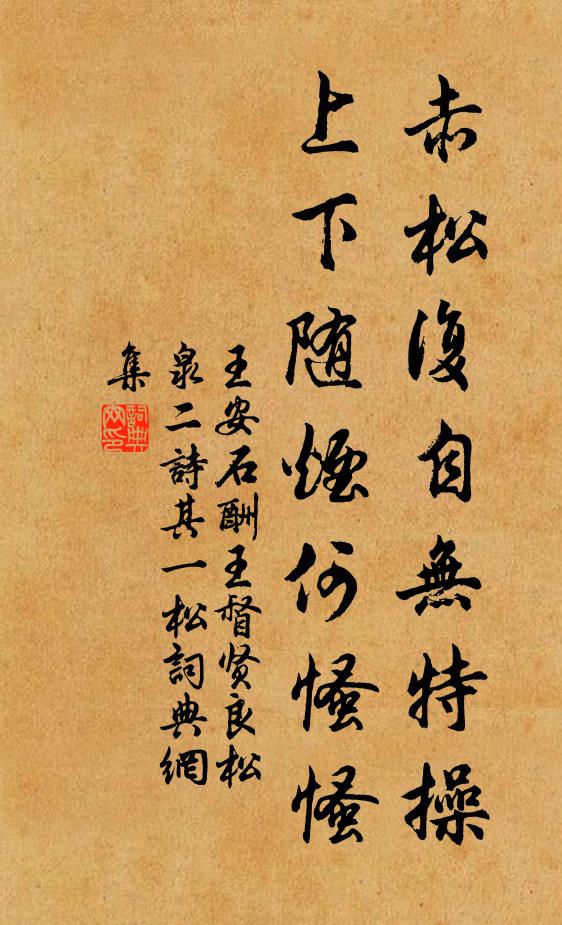 赤松復自無特操
上下随煙何慅慅
王安石酬王督贤良松
泉二詩其一松詞典網
集
詞典網印